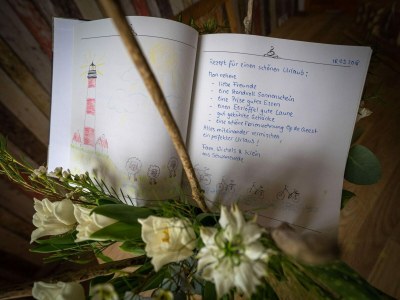 Rezept für einen schönen Urlaub:
Man nehme
- liebe Freunde
- eine Handvoll Sonnenschein
- eine Prise gutes Essen
- einen Esslöffel gute Laune
- gut gekühlte Getränke
- eine schöne Ferienwohnung
Alles miteinander vermischen
ein perfekter Urlaub!
Fam.
aus